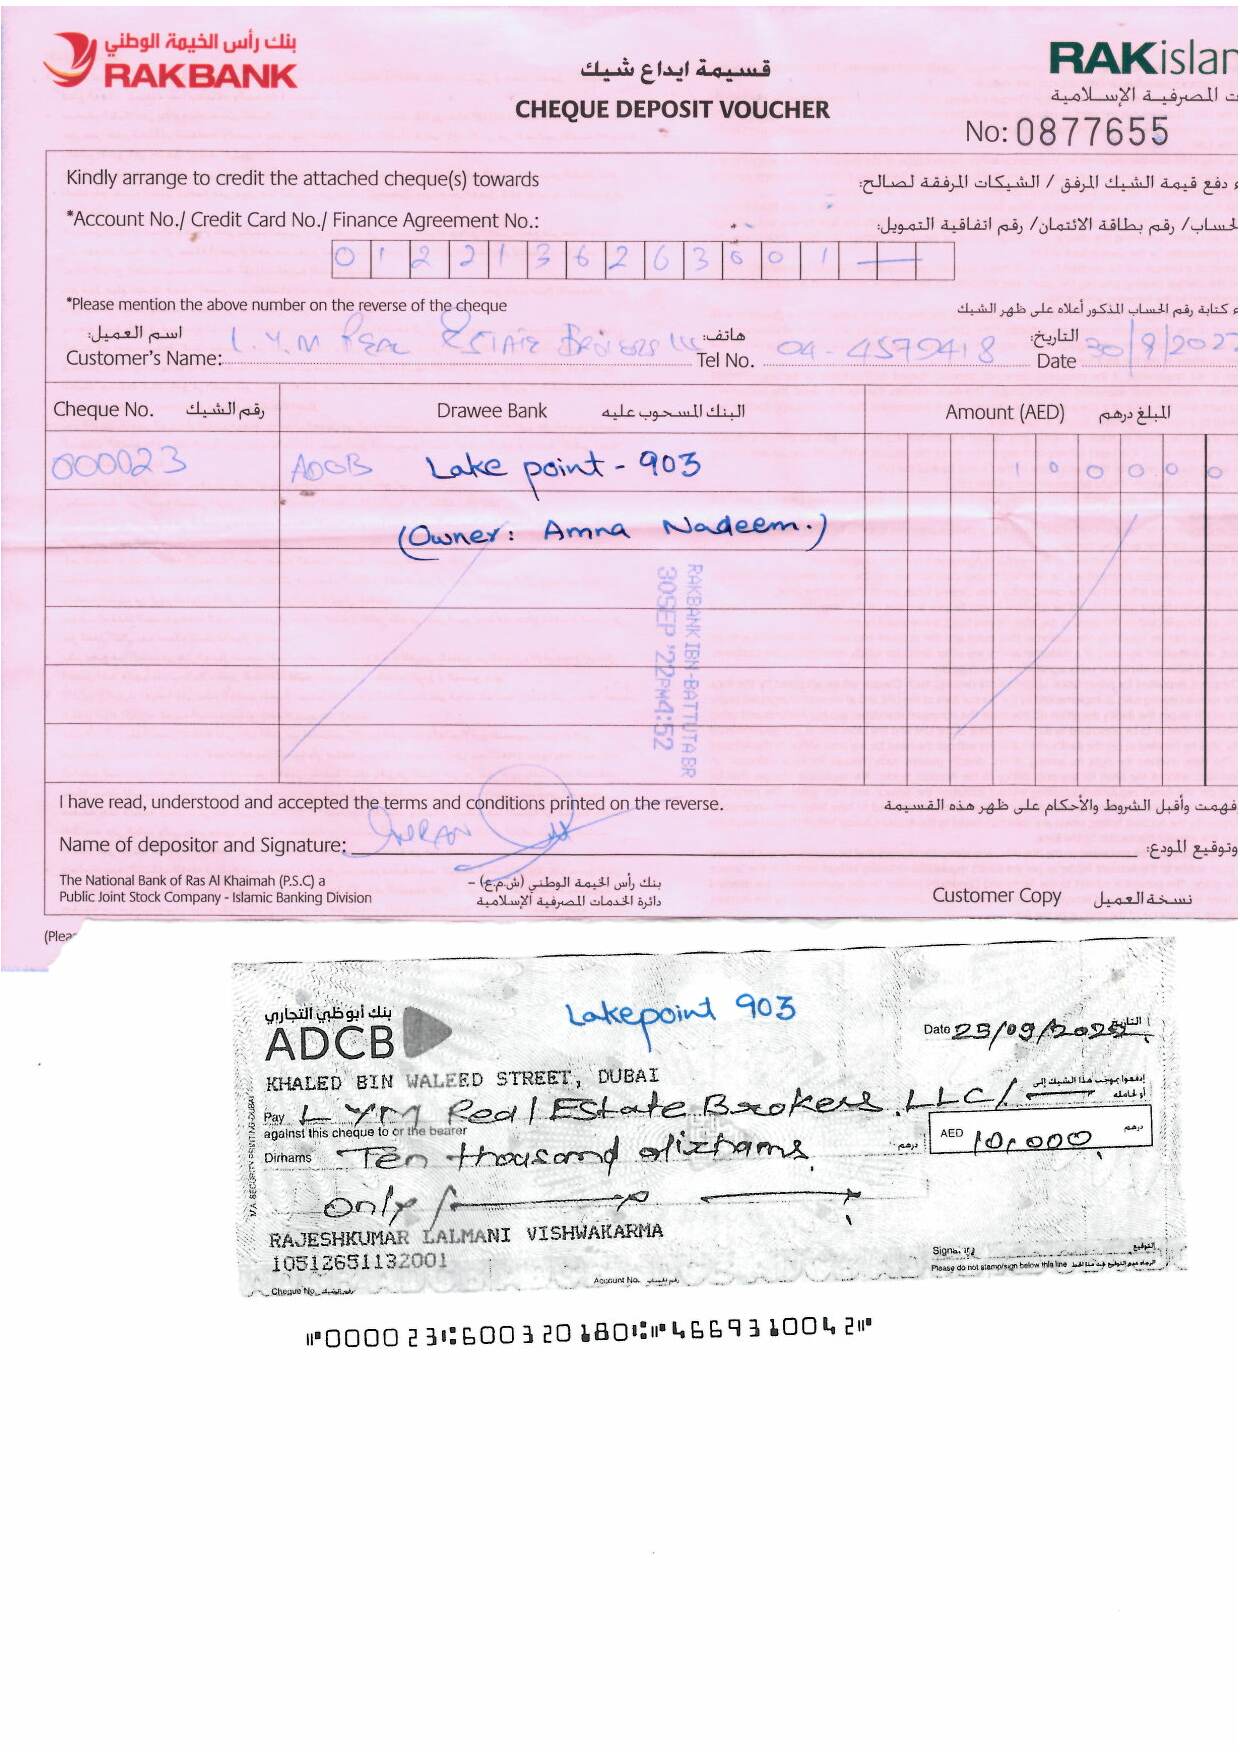 بنك رأس الخيمة الوطني
RAKBANK
قسيمة ايداع شيك
CHEQUE DEPOSIT VOUCHER
RAKislam
ت المصرفية الإسلامية
No: 0877655
Kindly arrange to credit the attached cheque(s) towards
دفع قيمة الشيك المرفق / الشيكات المرفقة لصالح:
*Account No./ Credit Card No./ Finance Agreement No.:
لحساب/ رقم بطاقة الائتمان/ رقم اتفاقية التمويل:
0122136263001
*Please mention the above number on the reverse of the cheque
كتابة رقم الحساب المذكور أعلاه على ظهر الشيك
اسم العميل: هاتف: التاريخ:
Customer's Name: L.Y.M Real Estate Brokers LLC Tel No. 04-4579418 Date 30/9/2022
Cheque No. رقم الشيك Drawee Bank البنك المسحوب عليه Amount (AED) المبلغ درهم
000023 ADCB Lake point - 903 100000
(Owner: Amna Nadeem.)
RAKBANK IBN-BATTUTA BR
30SEP '22PM4:52
I have read, understood and accepted the terms and conditions printed on the reverse.
فهمت وأقبل الشروط والأحكام على ظهر هذه القسيمة
Name of depositor and Signature: وتوقيع المودع:
IMRAN
The National Bank of Ras Al Khaimah (P.S.C) a
Public Joint Stock Company - Islamic Banking Division
بنك رأس الخيمة الوطني (ش.م.ع) –
دائرة الخدمات المصرفية الإسلامية
Customer Copy نسخة العميل
(Plea
بنك أبوظبي التجاري
ADCB
Lakepoint 903
Date 25/09/2022 التاريخ
KHALED BIN WALEED STREET, DUBAI
ادفعوا بموجب هذا الشيك إلى
أو لحامله
Pay LYM Real Estate Brokers.LLC/
against this cheque to or the bearer
AED 10,000 درهم
Dirhams Ten thousand dirhams درهم
only
RAJESHKUMAR LALMANI VISHWAKARMA
10512651132001
التوقيع
Please do not stamp/sign below this line
Account No. رقم الحساب
Cheque No. رقم الشيك
⑈000023⑆600320180⑆⑈4669310042⑈